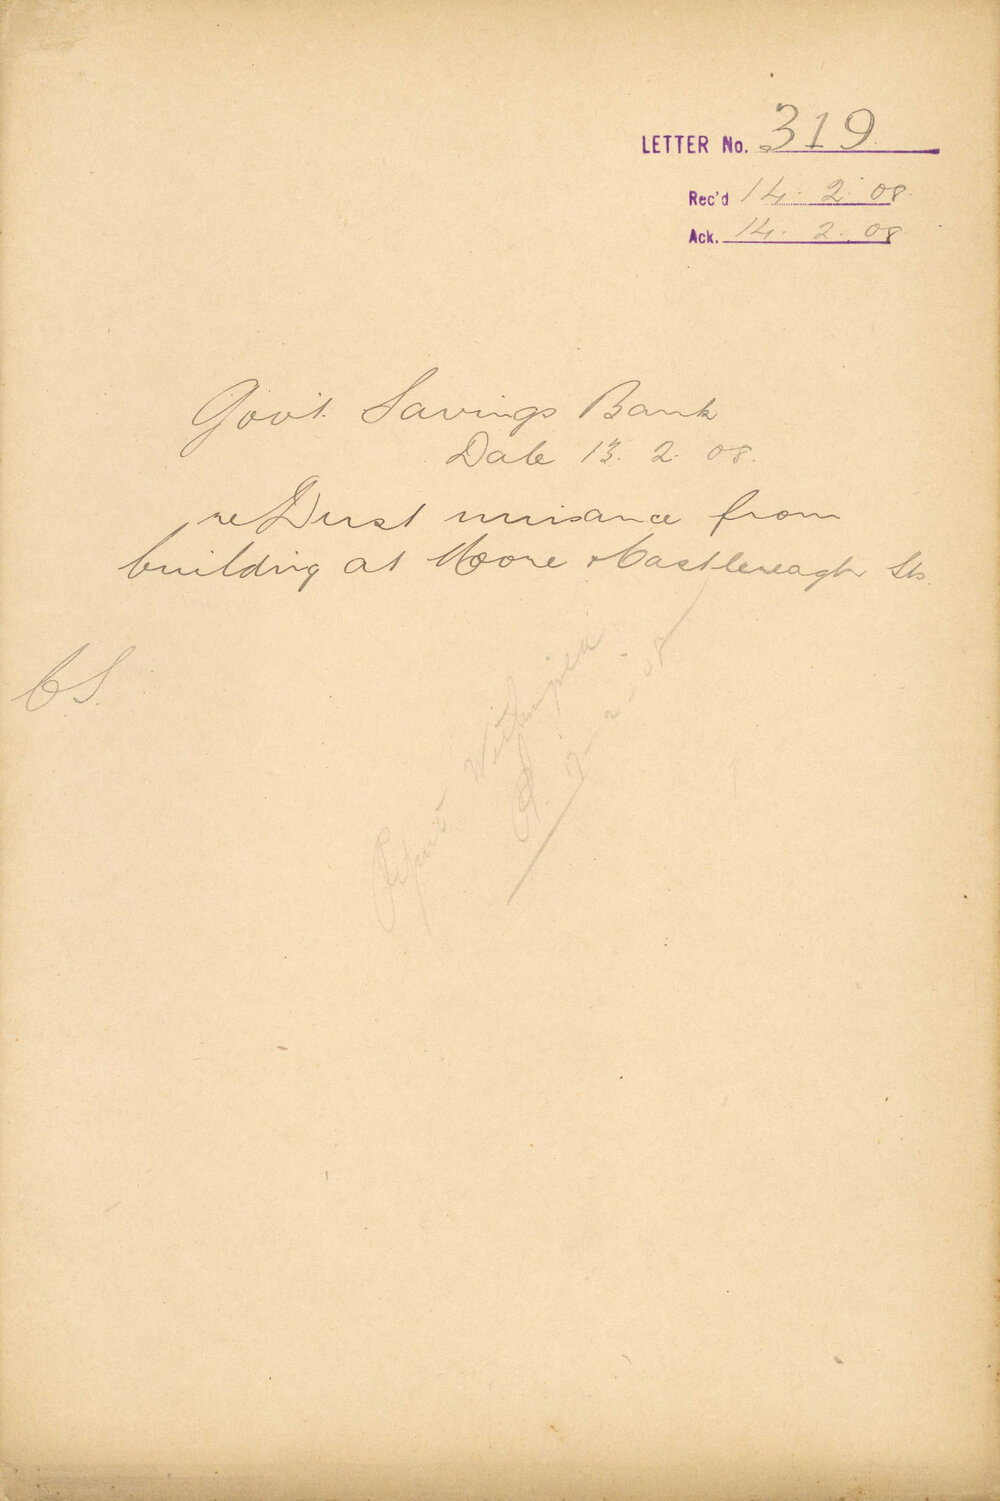 LETTER No. 319
Rec'd 14. 2. 08.
Ack. 14. 2. 08
Govt. Savings Bank
Date 13. 2. 08.
re Dust nuisance from
building at Moore & Castlereagh Sts.
C.S.